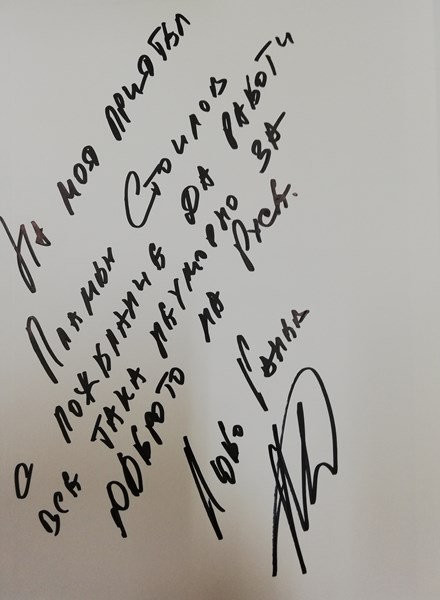 На моя приятел
Пламен Стоилов
с пожелание да работи
все така неуморно за
доброто на Русе.
Любо Ганев